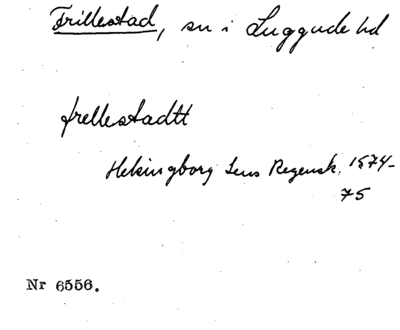 Frillestad, sn i Luggude hd
frellestadtt
Helsingborg Lens Regensk. 1574-
75
Nr 6556.